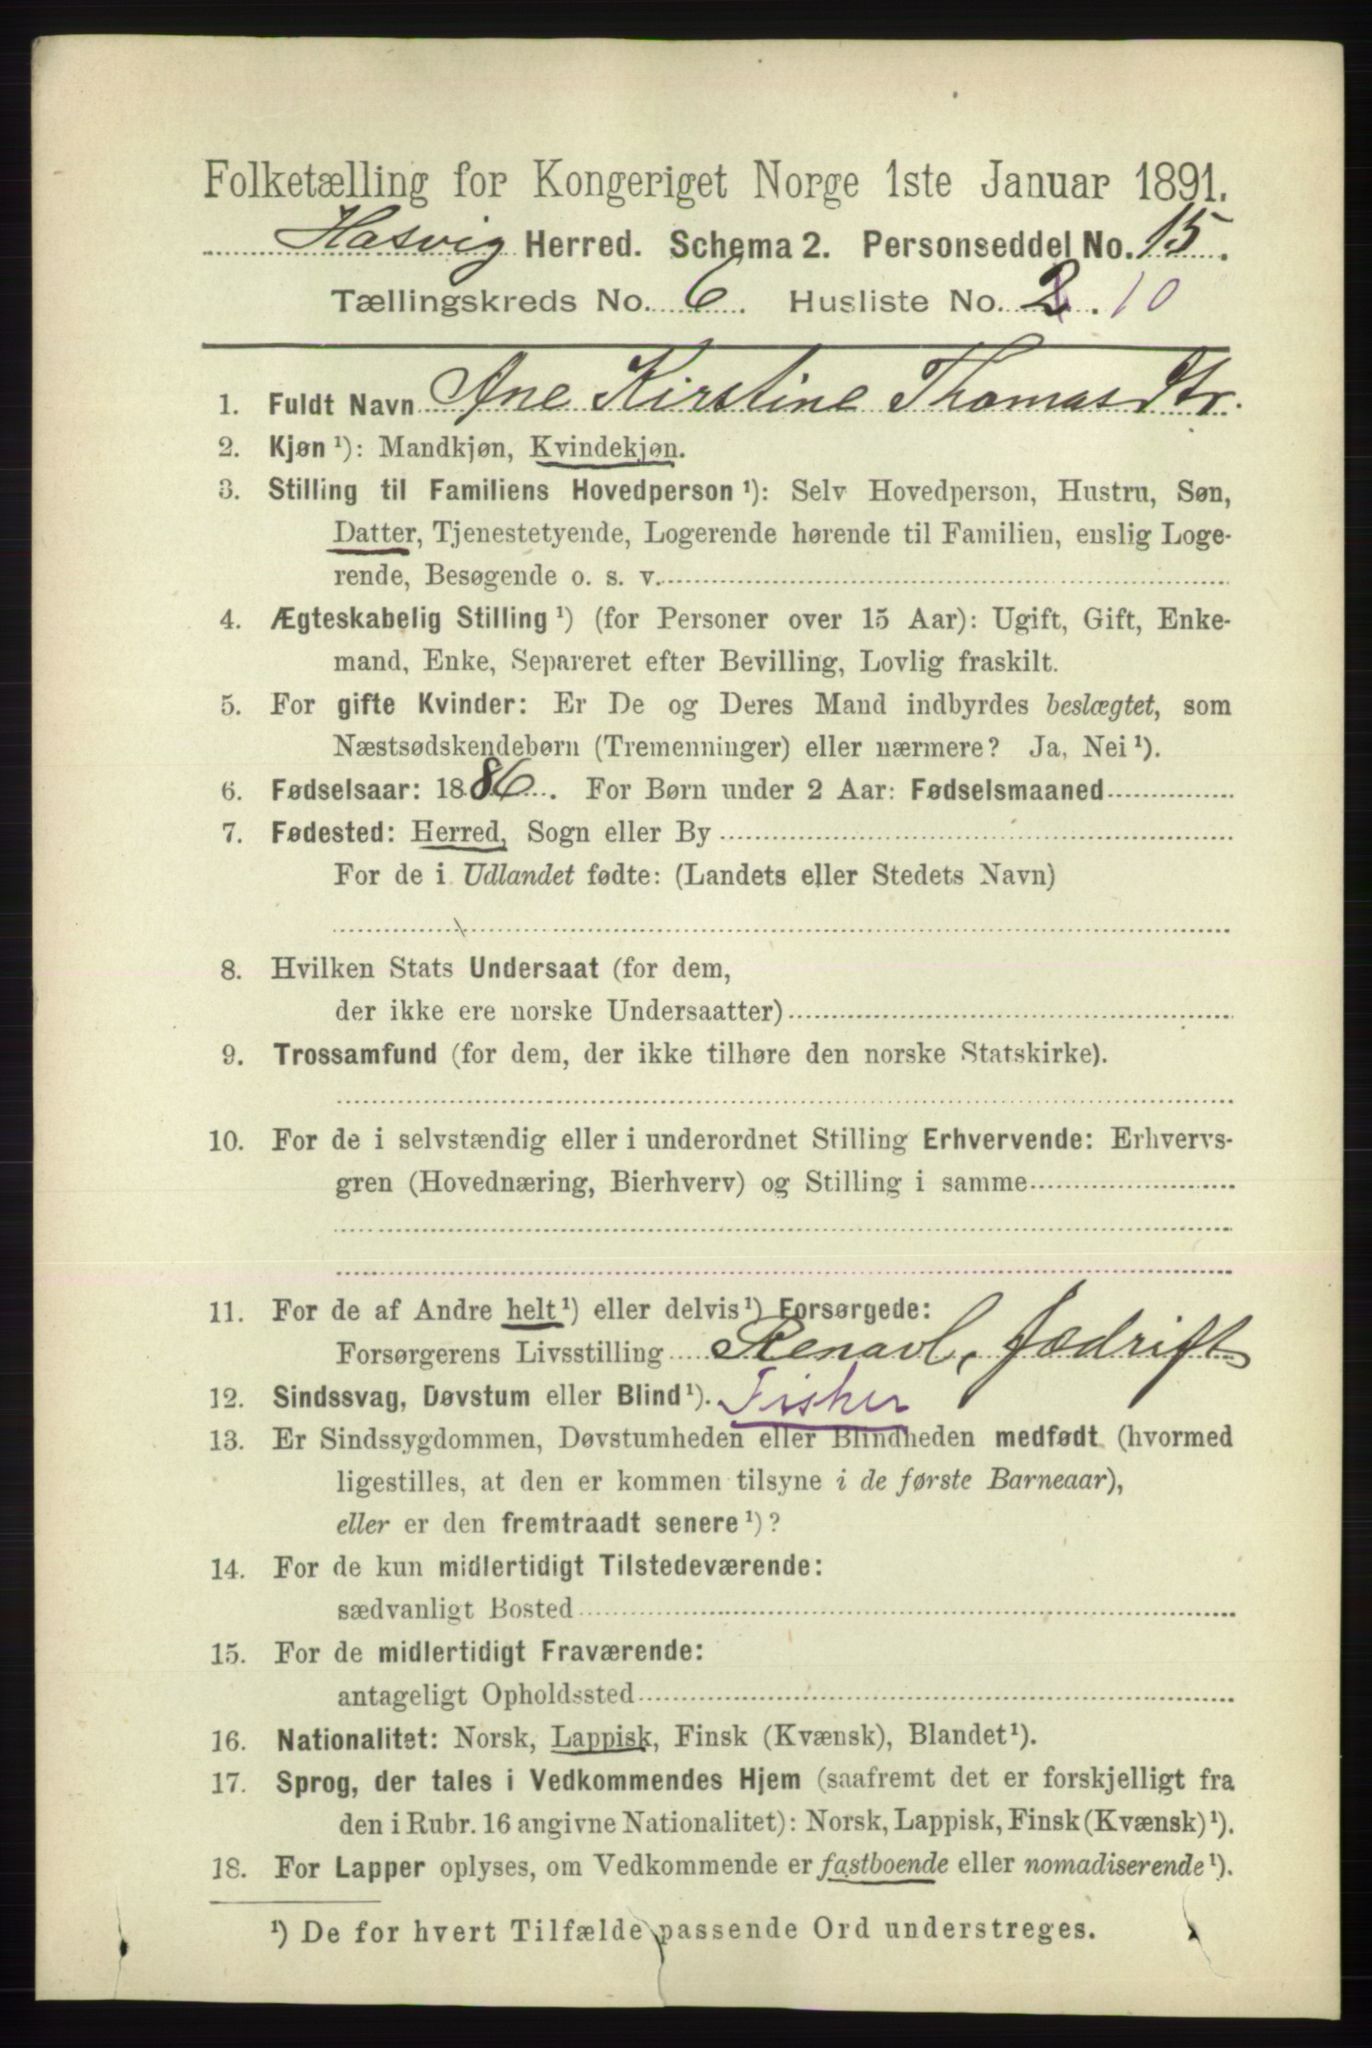 Folketælling for Kongeriget Norge 1ste Januar 1891.
Hasvig Herred. Schema 2. Personseddel No. 15.
Tællingskreds No. 6. Husliste No. 2. 10
1. Fuldt Navn Ane Kirstine Thomasdtr.
2. Kjøn ¹): Mandkjøn, Kvindekjøn.
3. Stilling til Familiens Hovedperson ¹): Selv Hovedperson, Hustru, Søn,
Datter, Tjenestetyende, Logerende hørende til Familien, enslig Loge-
rende, Besøgende o. s. v.
4. Ægteskabelig Stilling ¹) (for Personer over 15 Aar): Ugift, Gift, Enke-
mand, Enke, Separeret efter Bevilling, Lovlig fraskilt.
5. For gifte Kvinder: Er De og Deres Mand indbyrdes beslægtet, som
Næstsødskendebørn (Tremenninger) eller nærmere? Ja, Nei ¹).
6. Fødselsaar: 1886. For Børn under 2 Aar: Fødselsmaaned
7. Fødested: Herred, Sogn eller By
For de i Udlandet fødte: (Landets eller Stedets Navn)
8. Hvilken Stats Undersaat (for dem,
der ikke ere norske Undersaatter)
9. Trossamfund (for dem, der ikke tilhøre den norske Statskirke).
10. For de i selvstændig eller i underordnet Stilling Erhvervende: Erhvervs-
gren (Hovednæring, Bierhverv) og Stilling i samme
11. For de af Andre helt ¹) eller delvis ¹) Forsørgede:
Forsørgerens Livsstilling Renavl, Jædrift
12. Sindssvag, Døvstum eller Blind ¹). Fisker
13. Er Sindssygdommen, Døvstumheden eller Blindheden medfødt (hvormed
ligestilles, at den er kommen tilsyne i de første Barneaar),
eller er den fremtraadt senere ¹)?
14. For de kun midlertidigt Tilstedeværende:
sædvanligt Bosted
15. For de midlertidigt Fraværende:
antageligt Opholdssted
16. Nationalitet: Norsk, Lappisk, Finsk (Kvænsk), Blandet ¹).
17. Sprog, der tales i Vedkommendes Hjem (saafremt det er forskjelligt fra
den i Rubr. 16 angivne Nationalitet): Norsk, Lappisk, Finsk (Kvænsk) ¹).
18. For Lapper oplyses, om Vedkommende er fastboende eller nomadiserende ¹).
¹) De for hvert Tilfælde passende Ord understreges.